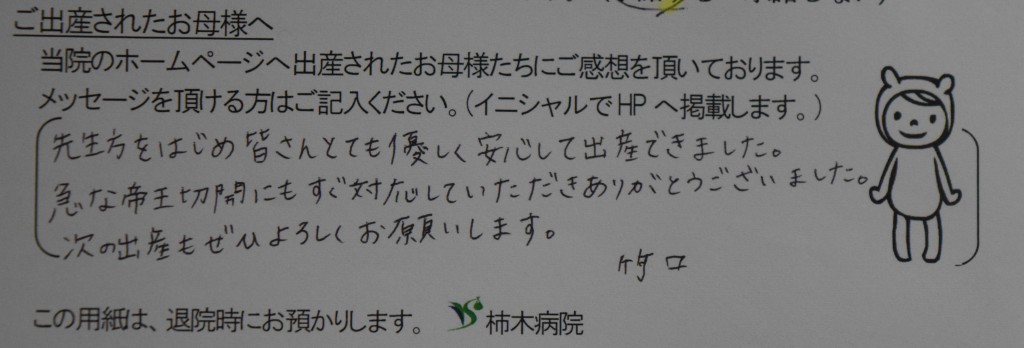 ご出産されたお母様へ
当院のホームページへ出産されたお母様たちにご感想を頂いております。
メッセージを頂ける方はご記入ください。(イニシャルでHPへ掲載します。)
先生方をはじめ皆さんとても優しく安心して出産できました。
急な帝王切開にもすぐ対応していただきありがとうございました。
次の出産もぜひよろしくお願いします。
竹口
この用紙は、退院時にお預かりします。 柿木病院